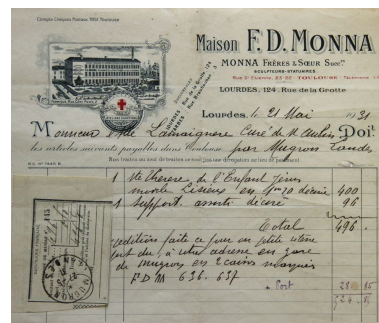 Compte Chèques Postaux 7950 Toulouse
Maison F. D. MONNA
MONNA FRÈRES & SŒUR Succrs
SCULPTEURS-STATUAIRES
Rue St Etienne, 23-22 - TOULOUSE - TÉLÉPHONE
LOURDES, 124, Rue de la Grotte
LOURDES
TARBES
Rue de la Grotte, 124
Lourdes, le 21 Mai 1931
Monsieur Labaignere Curé de St Aubin Doit
les articles suivants payables dans Toulouse par Mugron Landes
Nos traites ou send de traites ne sont pas une dérogation au lieu de paiement
1 Ste Therese de l'Enfant Jésus
modle Lisieux en 1m70 décorée 400
1 support assorti décoré 96
Total 496
expédition faite ce jour en petite vitesse
port dû à votre adresse en gare
de Mugron en 2 caisses marquées
F D M 636. 637
Port 28 85
524 85
MUGRON
LANDES